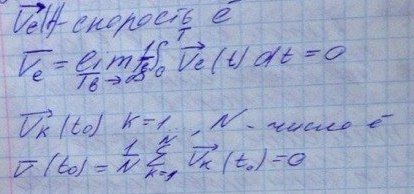 V⃗e(t) - скорость ē
V̄e = lim T→∞ 1/T ∫₀ᵀ V⃗e(t) dt = 0
V⃗k(t₀) k=1.., N - число ē
v̄(t₀) = 1/N Σ_{k=1}^{N} V⃗k(t₀) = 0